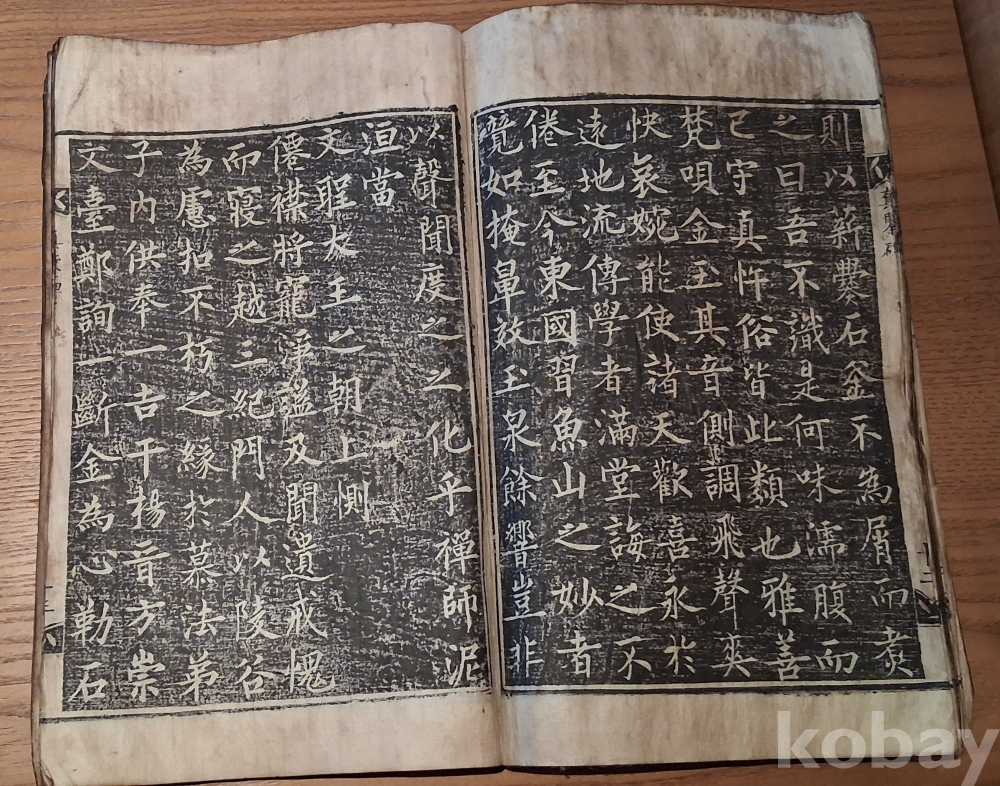 則以薪爨石釜不為屑而煮
之曰吾不識是何味濡腹而
已守真忤俗皆此類也雅善
梵唄金玉其音側調飛聲爽
快哀婉能使諸天歡喜永於
遠地流傳學者滿堂誨之不
倦至今東國習魚山之妙者
競如掩鼻效玉泉餘響豈非
以聲聞度之之化乎禪師泥
洹當
文聖大王之朝上惻
僊襟將寵淨諡及聞遺戒愧
而寢之越三紀門人以陵谷
為慮扣不朽之緣於慕法弟
子內供奉一吉干楊晉方崇
文臺鄭詢一斷金為心勒石
kobay